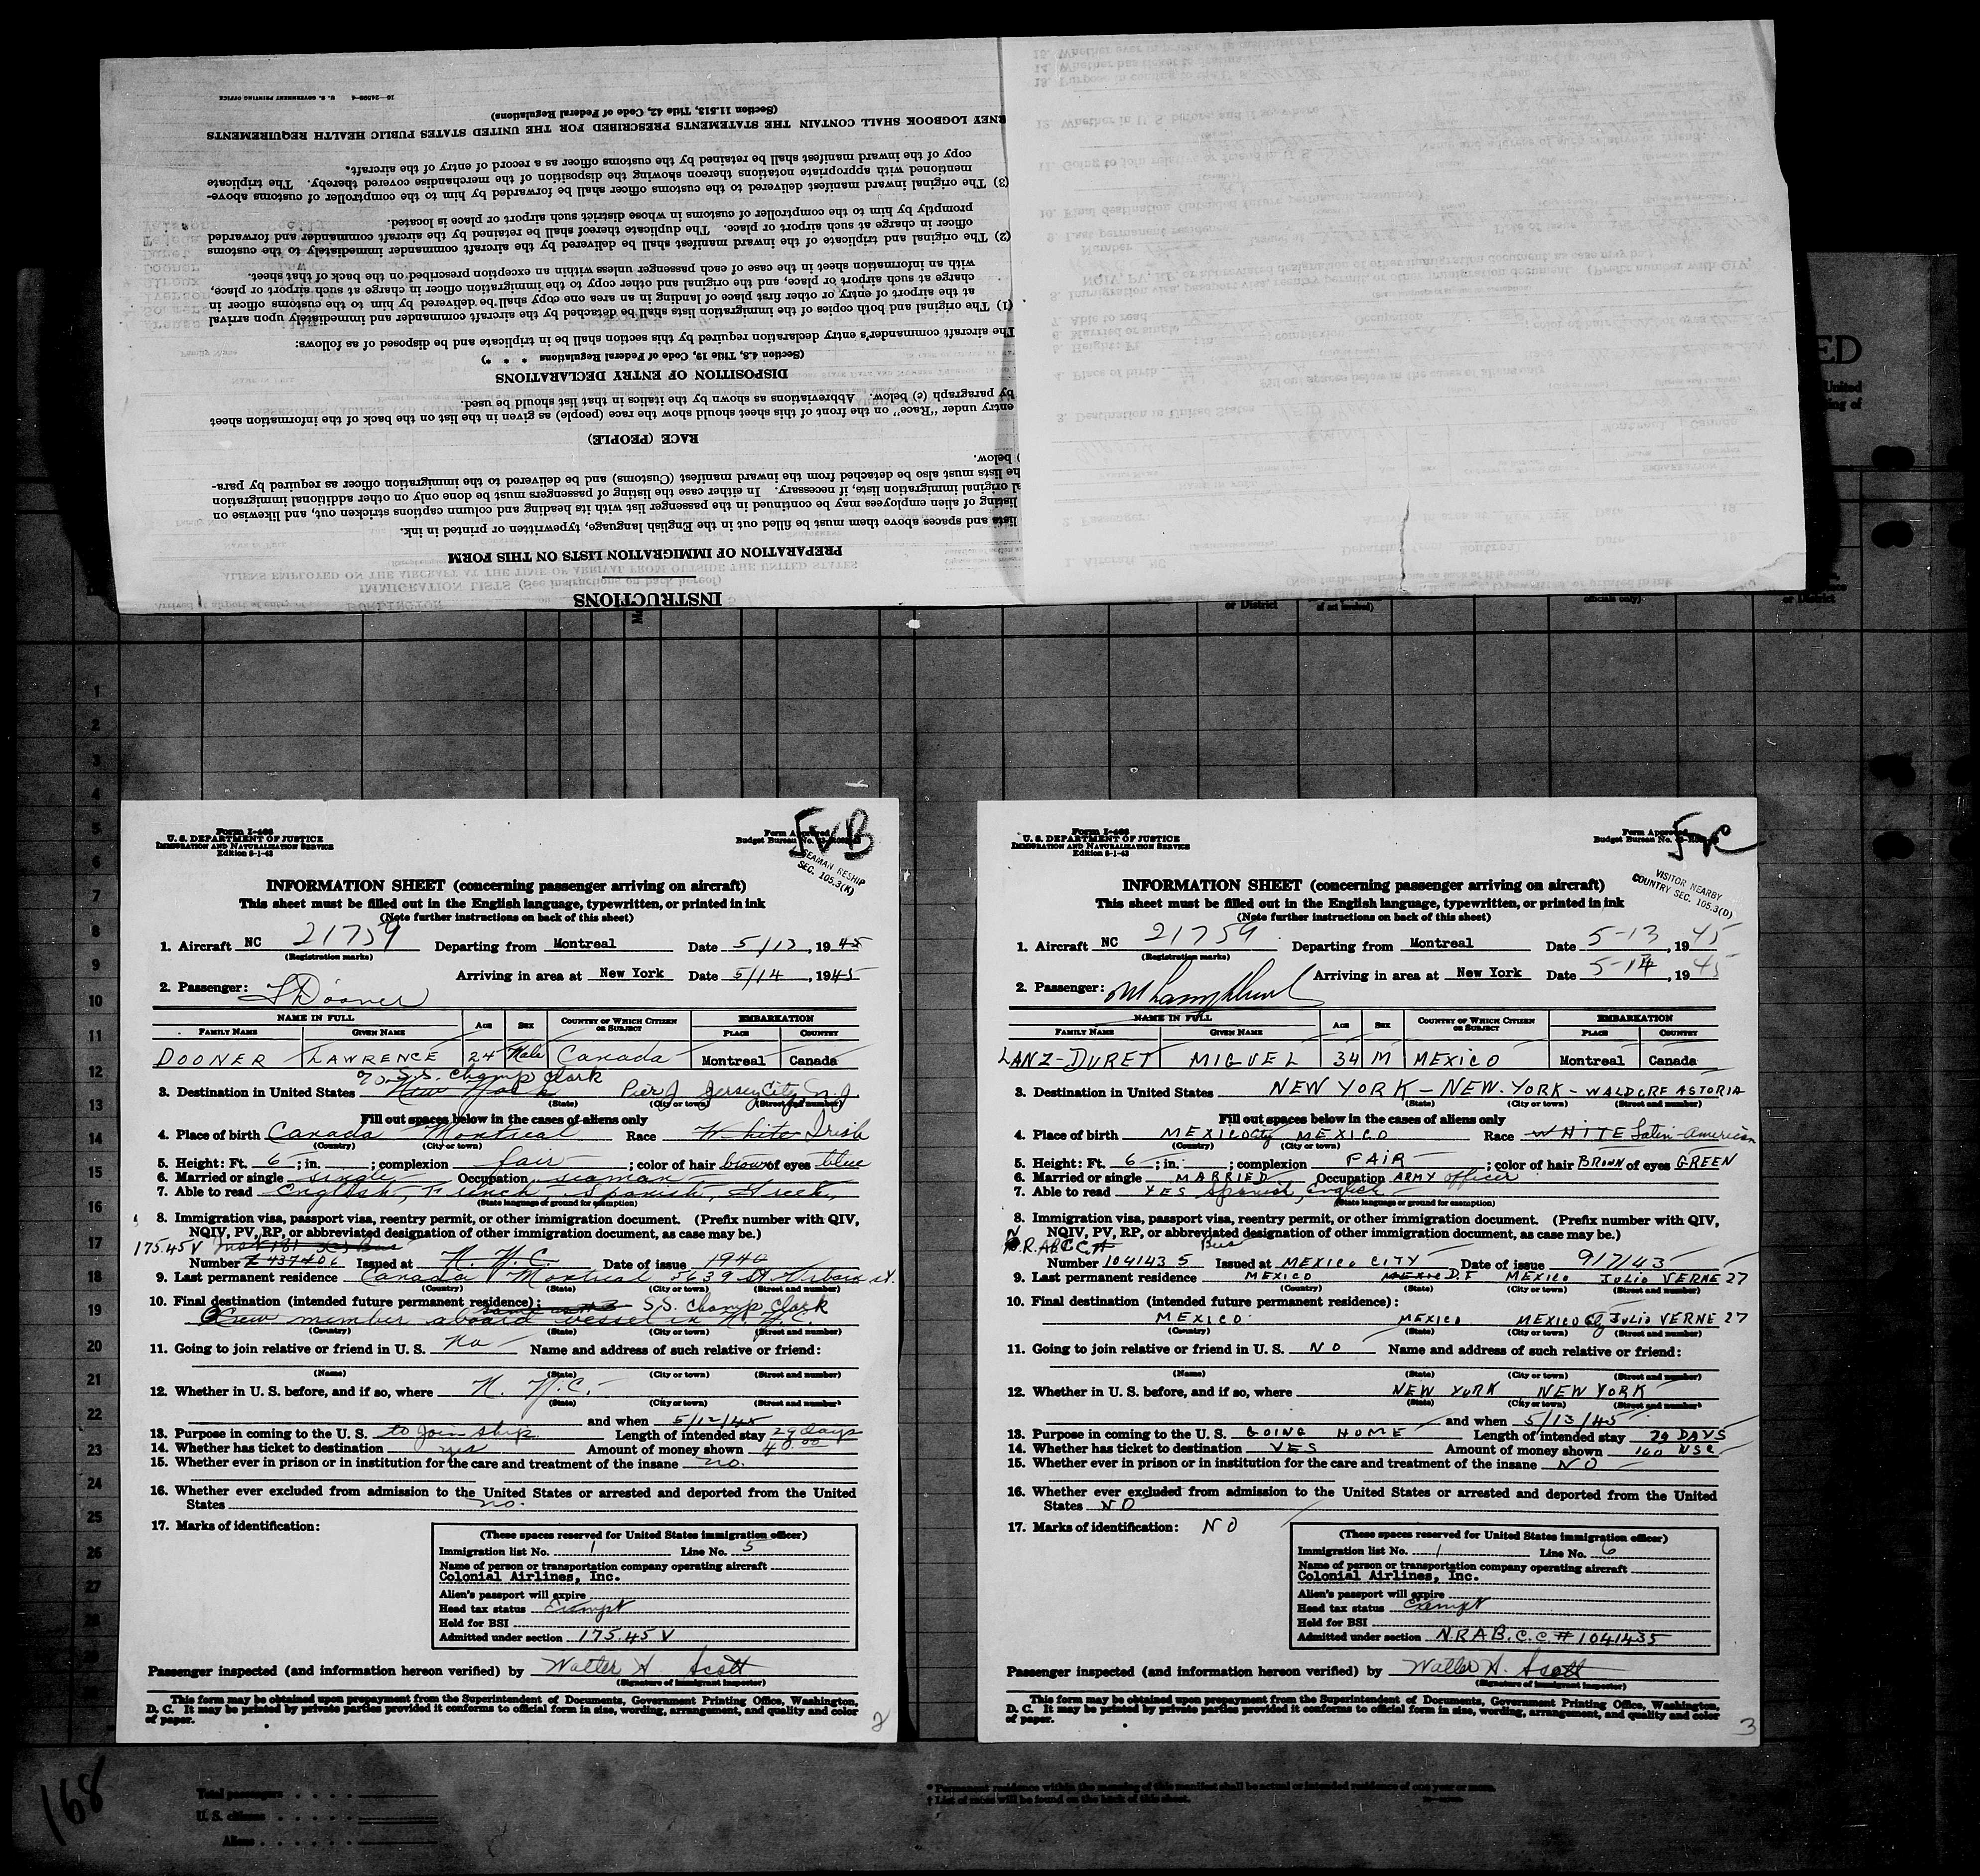 INSTRUCTIONS
PREPARATION OF IMMIGRATION LISTS ON THIS FORM
lists and spaces above them must be filled out in the English language, typewritten or printed in ink.
listing of alien employees may be continued in the passenger list with its heading and column captions stricken out, and likewise on
al original immigration lists, if necessary. In either case the listing of passengers must be done only on other additional immigration
he lists must also be detached from the inward manifest (Customs) and be delivered to the immigration officer as required by para-
) below.
RACE (PEOPLE)
entry under "Race" on the front of this sheet should show the race (people) as given in the list on the back of the information sheet
by paragraph (c) below. Abbreviations as shown by the italics in that list should be used.
DISPOSITION OF ENTRY DECLARATIONS
(Section 4.8, Title 19, Code of Federal Regulations * * *)
The aircraft commander's entry declaration required by this section shall be in triplicate and be disposed of as follows:
(1) The original and both copies of the immigration lists shall be detached by the aircraft commander and immediately upon arrival
at the airport of entry or other first place of landing in an area one copy shall be delivered by him to the customs officer in
charge at such airport or place, and the original and other copy to the immigration officer in charge at such airport or place,
with an information sheet in the case of each passenger unless within an exception prescribed on the back of that sheet.
(2) The original and triplicate of the inward manifest shall be delivered by the aircraft commander immediately to the customs
officer in charge at such airport or place. The duplicate thereof shall be retained by the aircraft commander and forwarded
promptly by him to the comptroller of customs in whose district such airport or place is located.
(3) The original inward manifest delivered to the customs officer shall be forwarded by him to the comptroller of customs above-
mentioned with appropriate notations thereon showing the disposition of the merchandise covered thereby. The triplicate
copy of the inward manifest shall be retained by the customs officer as a record of entry of the aircraft.
RNEY LOGBOOK SHALL CONTAIN THE STATEMENTS PRESCRIBED FOR THE UNITED STATES PUBLIC HEALTH REQUIREMENTS
(Section 11.513, Title 42, Code of Federal Regulations)
U. S. GOVERNMENT PRINTING OFFICE
ED
United
or District
officials only).
or District
1
2
3
4
5
6
7
8
9
10
11
12
13
14
15
16
17
18
19
20
21
22
23
24
25
26
27
28
29
Form I-466
U. S. DEPARTMENT OF JUSTICE
IMMIGRATION AND NATURALIZATION SERVICE
Edition 8-1-43
Form Approved
Budget Bureau No.
5 B
SEAMAN RESHIP
SEC. 105.3(K)
INFORMATION SHEET (concerning passenger arriving on aircraft)
This sheet must be filled out in the English language, typewritten, or printed in ink
(Note further instructions on back of this sheet)
1. Aircraft NC 21759 Departing from Montreal Date 5/13, 1945
(Registration marks)
Arriving in area at New York Date 5/14, 1945
2. Passenger: L Dooner
NAME IN FULL AGE SEX COUNTRY OF WHICH CITIZEN OR SUBJECT EMBARKATION
FAMILY NAME GIVEN NAME PLACE COUNTRY
DOONER LAWRENCE 24 Male Canada Montreal Canada
% S.S. Champ Clark
3. Destination in United States New York Pier J Jersey City N.J.
(State) (City or town) (Street and number)
Fill out spaces below in the cases of aliens only
4. Place of birth Canada Montreal Race White Irish
(Country) (City or town)
5. Height: Ft. 6; in. ; complexion fair; color of hair brown of eyes blue
6. Married or single single Occupation seaman
7. Able to read English, French Spanish, Greek,
(State language or ground for exemption)
8. Immigration visa, passport visa, reentry permit, or other immigration document. (Prefix number with QIV,
NQIV, PV, RP, or abbreviated designation of other immigration document, as case may be.)
175.45 V
Number Z 437406 Issued at N.Y.C. Date of issue 1940
9. Last permanent residence Canada Montreal 5639 St. Urbain st.
(Country) (State) (City or town) (Street and number)
10. Final destination (intended future permanent residence): same as #3 S.S. Champ Clark
Crew member aboard vessel in N.Y.C.
(Country) (State) (City or town) (Street and number)
11. Going to join relative or friend in U. S. No Name and address of such relative or friend:
(Name) (State) (City or town) (Street and number)
12. Whether in U. S. before, and if so, where N.Y.C.
(State) (City or town) (Street and number)
and when 5/12/45
13. Purpose in coming to the U. S. to join ship Length of intended stay 29 days
14. Whether has ticket to destination yes Amount of money shown 40.00
15. Whether ever in prison or in institution for the care and treatment of the insane no.
16. Whether ever excluded from admission to the United States or arrested and deported from the United
States no.
17. Marks of identification:
(These spaces reserved for United States immigration officer)
Immigration list No. 1 Line No. 5
Name of person or transportation company operating aircraft
Colonial Airlines, Inc.
Alien's passport will expire
Head tax status Exempt
Held for BSI
Admitted under section 175.45 V
Passenger inspected (and information hereon verified) by Walter A. Scott
(Signature of immigrant inspector)
This form may be obtained upon prepayment from the Superintendent of Documents, Government Printing Office, Washington,
D. C. It may be printed by private parties provided it conforms to official form in size, wording, arrangement, and quality and color
of paper.
2
Form I-466
U. S. DEPARTMENT OF JUSTICE
IMMIGRATION AND NATURALIZATION SERVICE
Edition 8-1-43
Form Approved
Budget Bureau No.
5 C
VISITOR NEARBY
COUNTRY SEC. 105.3(D)
INFORMATION SHEET (concerning passenger arriving on aircraft)
This sheet must be filled out in the English language, typewritten, or printed in ink
(Note further instructions on back of this sheet)
1. Aircraft NC 21759 Departing from Montreal Date 5-13, 1945
(Registration marks)
Arriving in area at New York Date 5-14, 1945
2. Passenger:
NAME IN FULL AGE SEX COUNTRY OF WHICH CITIZEN OR SUBJECT EMBARKATION
FAMILY NAME GIVEN NAME PLACE COUNTRY
LANZ-DURET MIGUEL 34 M MEXICO Montreal Canada
3. Destination in United States NEW YORK - NEW YORK - WALDORF ASTORIA
(State) (City or town) (Street and number)
Fill out spaces below in the cases of aliens only
4. Place of birth MEXICO City MEXICO Race WHITE Latin-American
(Country) (City or town)
5. Height: Ft. 6; in. ; complexion FAIR; color of hair BROWN of eyes GREEN
6. Married or single MARRIED Occupation ARMY officer
7. Able to read YES Spanish, English
(State language or ground for exemption)
8. Immigration visa, passport visa, reentry permit, or other immigration document. (Prefix number with QIV,
NQIV, PV, RP, or abbreviated designation of other immigration document, as case may be.)
N.R.A.B.C.C.#
Number 1041435 Issued at MEXICO CITY Date of issue 9/7/43
9. Last permanent residence MEXICO MEXICO D.F MEXICO JULIO VERNE 27
(Country) (State) (City or town) (Street and number)
10. Final destination (intended future permanent residence):
MEXICO MEXICO MEXICO City JULIO VERNE 27
(Country) (State) (City or town) (Street and number)
11. Going to join relative or friend in U. S. NO Name and address of such relative or friend:
(Name) (State) (City or town) (Street and number)
12. Whether in U. S. before, and if so, where NEW YORK NEW YORK
(State) (City or town) (Street and number)
and when 5/13/45
13. Purpose in coming to the U. S. GOING HOME Length of intended stay 29 DAYS
14. Whether has ticket to destination YES Amount of money shown 160
15. Whether ever in prison or in institution for the care and treatment of the insane NO
16. Whether ever excluded from admission to the United States or arrested and deported from the United
States NO
17. Marks of identification: NO
(These spaces reserved for United States immigration officer)
Immigration list No. 1 Line No. 6
Name of person or transportation company operating aircraft
Colonial Airlines, Inc.
Alien's passport will expire
Head tax status Exempt
Held for BSI
Admitted under section N.R.A.B.C.C.# 1041435
Passenger inspected (and information hereon verified) by Walter A. Scott
(Signature of immigrant inspector)
This form may be obtained upon prepayment from the Superintendent of Documents, Government Printing Office, Washington,
D. C. It may be printed by private parties provided it conforms to official form in size, wording, arrangement, and quality and color
of paper.
3
168
Total passengers
U. S. citizens
Aliens
* Permanent residence within the meaning of this manifest shall be actual or intended residence of one year or more.
† List of races will be found on the back of this sheet.